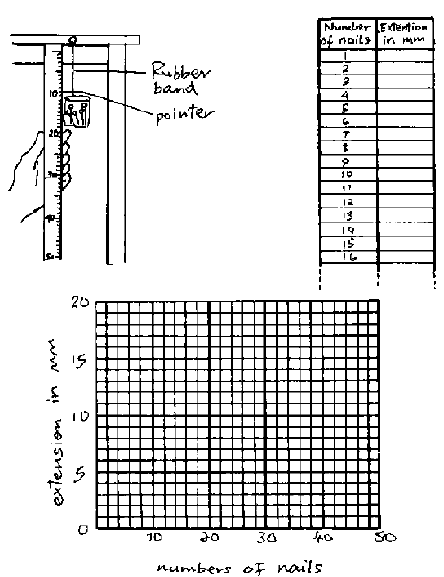 Rubber
band
pointer
10
20
30
40
50
Number of nails
Extention in mm
1
2
3
4
5
6
7
8
9
10
11
12
13
14
15
16
20
15
10
5
0
extension in mm
10 20 30 40 50
numbers of nails